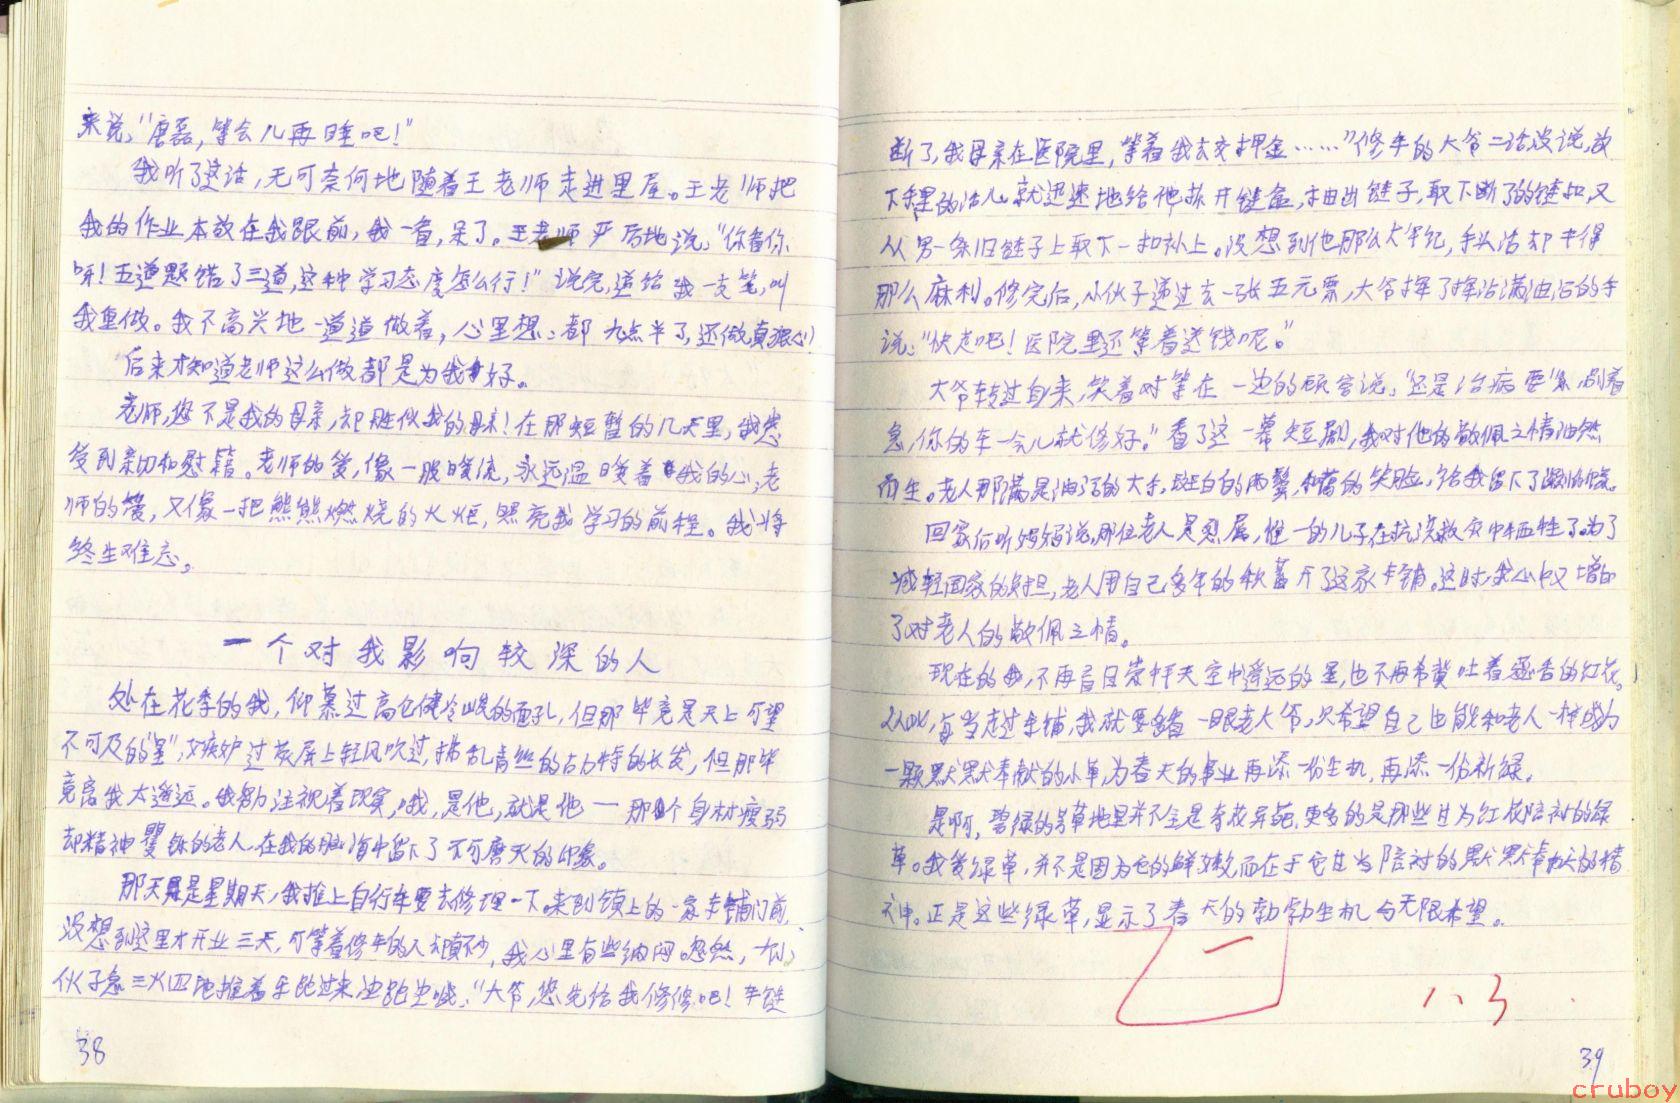 来说："唐磊，等会儿再睡吧！"
我听了这话，无可奈何地随着王老师走进里屋。王老师把
我的作业本放在我跟前，我一看，呆了。王老师严厉地说："你看你
呀！五道题错了三道，这种学习态度怎么行！"说完，递给我一支笔，叫
我重做。我不高兴地一道道做着，心里想：都九点半了，还做真狠心！
后来才知道老师这么做都是为我好。
老师，您不是我的母亲，却胜似我的母亲！在那短暂的几天里，我感
受到亲切和慰籍。老师的爱，像一股暖流，永远温暖着我的心；老
师的爱，又像一把熊熊燃烧的火炬，照亮我学习的前程。我将
终生难忘。
一个对我影响较深的人
处在花季的我，仰慕过高仓健冷峻的面孔，但那毕竟是天上可望
不可及的"星"，嫉妒过荧屏上轻风吹过，拂乱青丝的古特的长发，但那毕
竟离我太遥远。我努力注视着现实，哦，是他，就是他——那个身材瘦弱
却精神矍铄的老人，在我的脑海中留下了不可磨灭的印象。
那天是星期天，我推上自行车要去修理一下。来到镇上的一家车铺门前，
没想到这里才开业三天，可等着修车的人去真不少，我心里有些纳闷。忽然，一个小
伙子急三火四地推着车跑过来边跑边喊："大爷，您先给我修修吧！车链
38
断了，我母亲在医院里，等着我去交押金……"修车的大爷二话没说，放
下手里的活儿，就迅速地给他拆开链盒，抽出链子，取下断了的链扣，又
从另一条旧链子上取下一扣补上。没想到他那么大年纪，手头活却干得
那么麻利。修完后，小伙子递过去一张五元票，大爷挥了挥沾满油污的手
说："快走吧！医院里还等着送钱呢。"
大爷转过身来，笑着对等在一边的顾客说："还是治病要紧，别着
急，你的车一会儿就修好。"看了这一幕短剧，我对他的敬佩之情油然
而生。老人那满是油污的大手，斑白的两鬓，和蔼的笑脸，给我留下了深刻的印象。
回家后听妈妈说，那位老人是烈属，惟一的儿子在抗洪救灾中牺牲了。为了
减轻国家的负担，老人用自己多年的积蓄开了这家车铺。这时，我心中又增加
了对老人的敬佩之情。
现在的我，不再盲目崇拜天空中遥远的星，也不再希冀吐着幽香的红花。
从此，每当走过车铺，我就要多看一眼老大爷，只希望自己也能和老人一样成为
一颗默默奉献的小草，为春天的事业再添一份生机，再添一份新绿。
是啊，碧绿的芳草地里并不全是奇花异葩，更多的是那些甘为红花陪衬的绿
草。我爱绿草，并不是因为它的鲜嫩，而在于它甘当陪衬的默默奉献的精
神。正是这些绿草，显示了春天的勃勃生机与无限希望。
39
cruboy